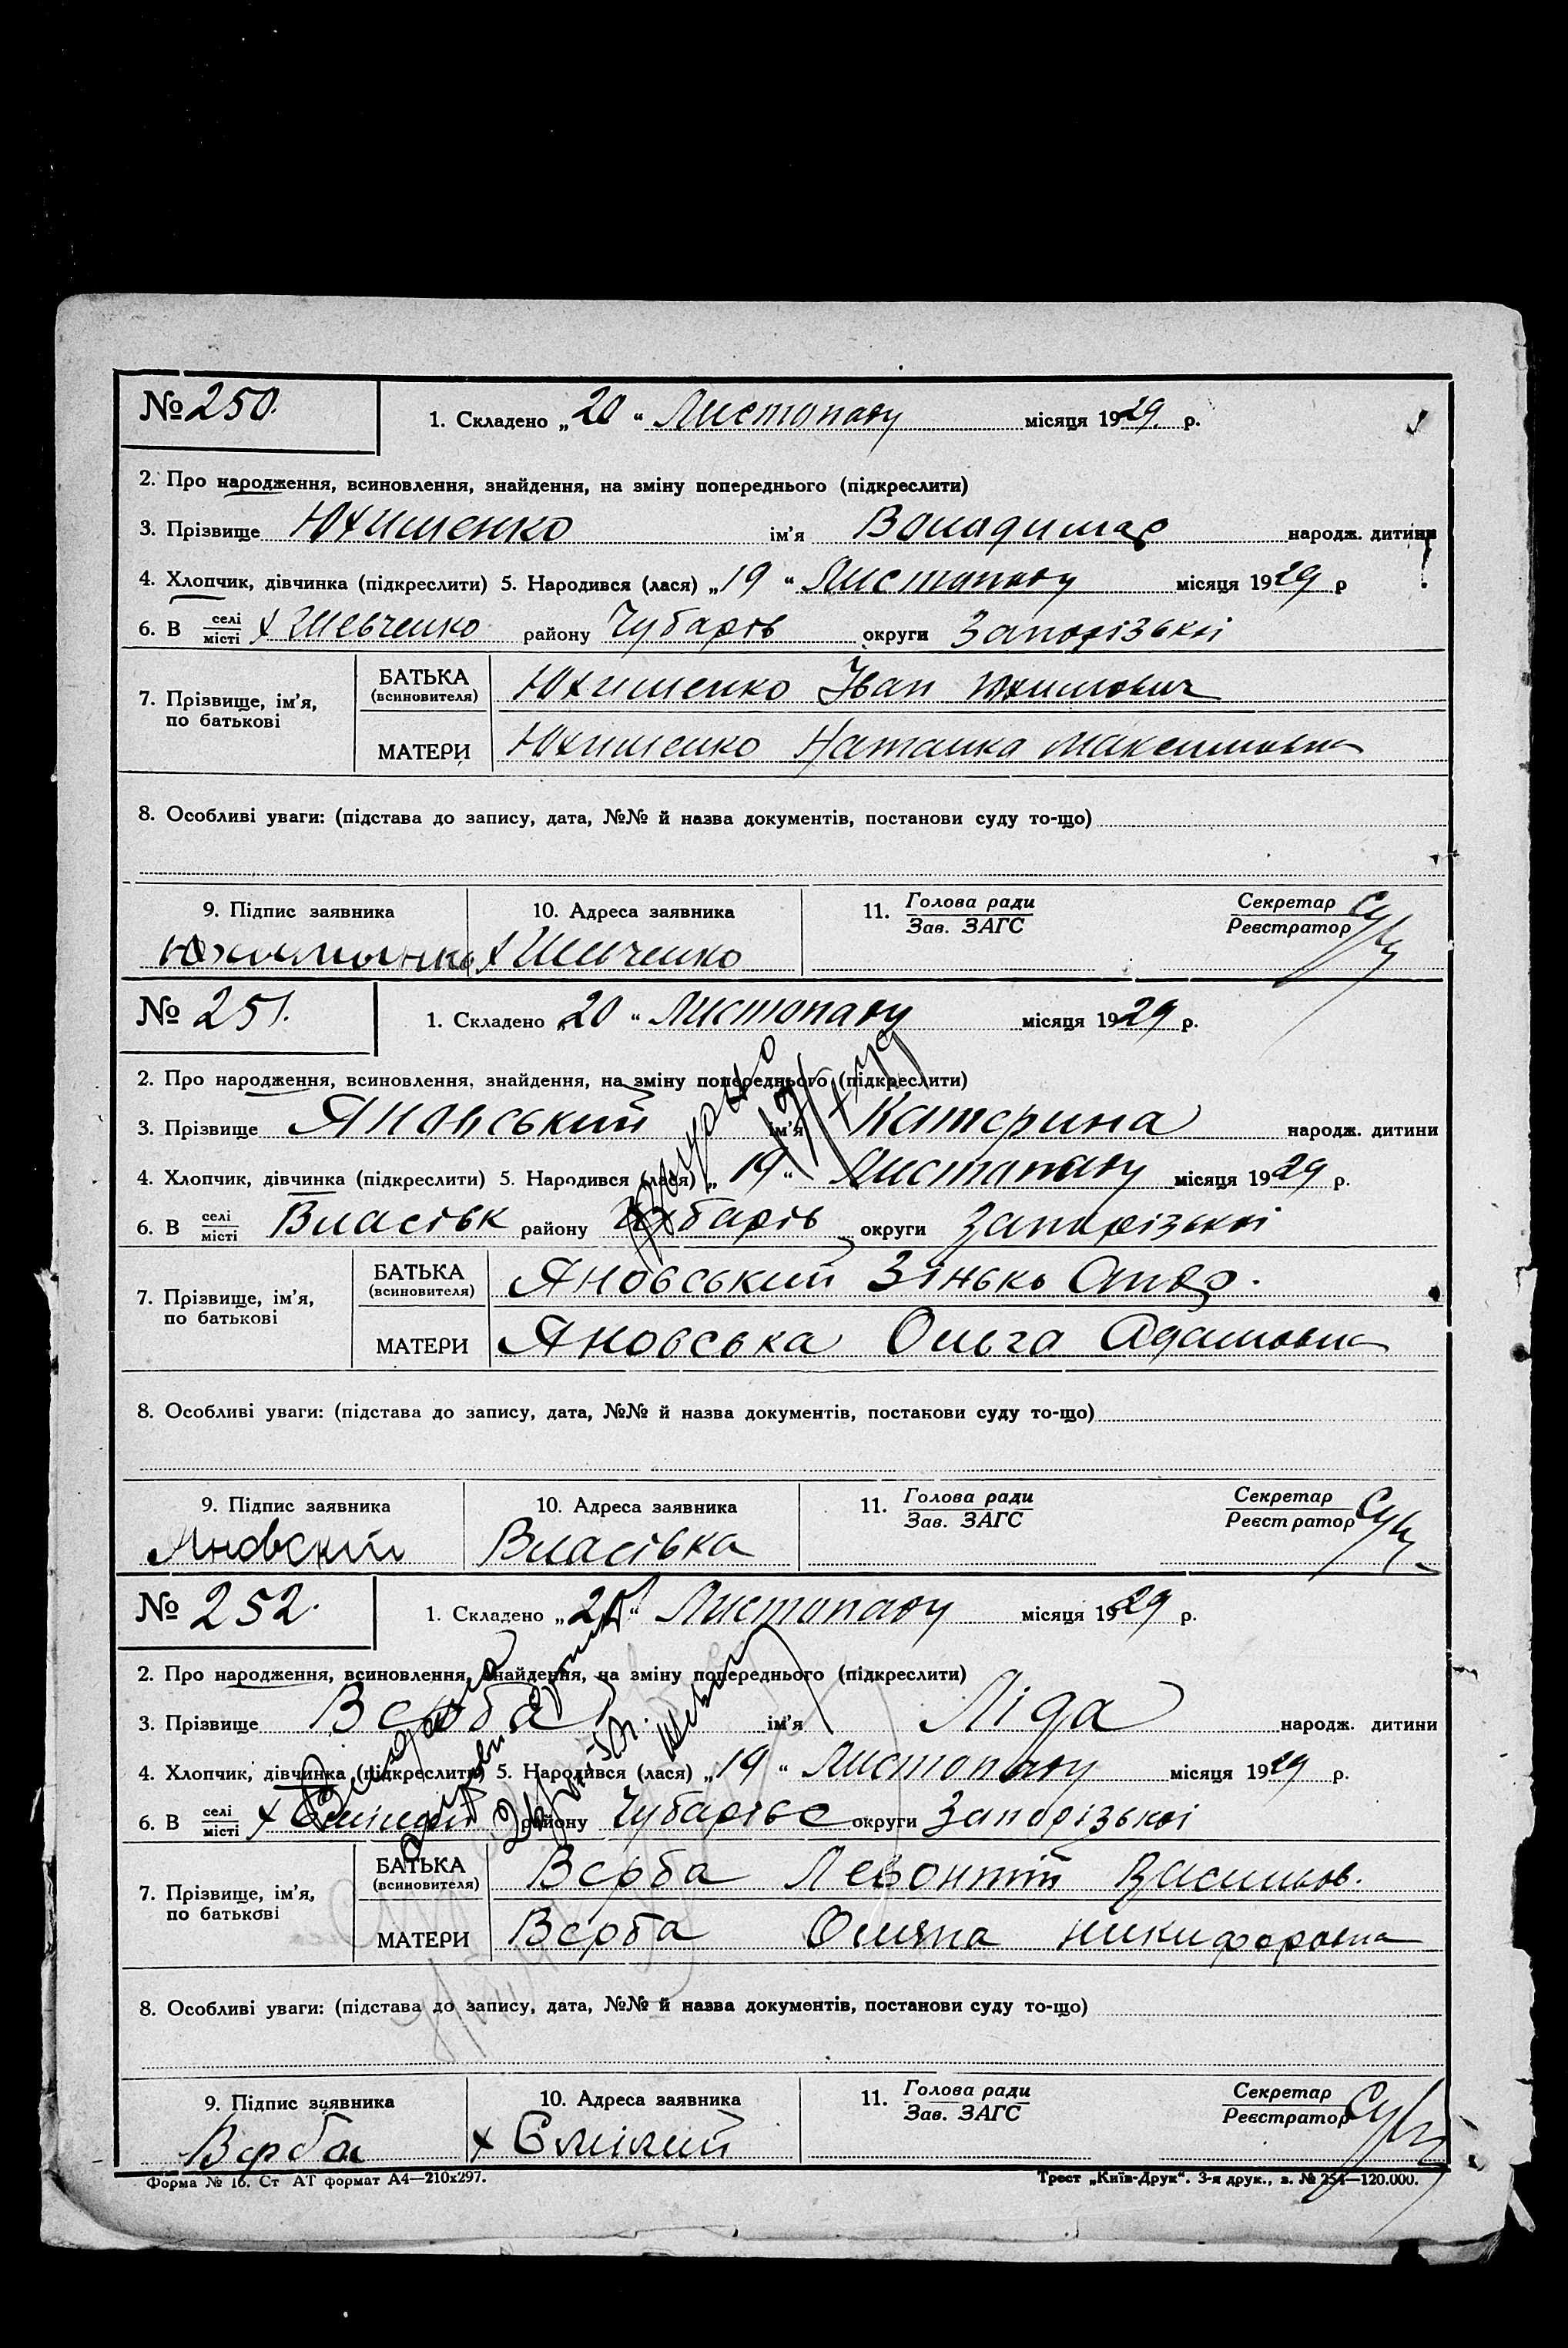 № 250. 1. Складено „20“ Листопаду місяця 1929. р.
2. Про народження, всиновлення, знайдення, на зміну попереднього (підкреслити)
3. Прізвище Юхименко ім'я Володимар народж. дитини
4. Хлопчик, дівчинка (підкреслити) 5. Народився (лася) „19“ Листопаду місяця 1929 р
6. В селі місті х Шевченко району Чубарів округи Запорізької
7. Прізвище, ім'я, по батькові
БАТЬКА (всиновителя) Юхименко Іван Юхимович
МАТЕРИ Юхименко Наталка Максимовна
8. Особливі уваги: (підстава до запису, дата, №№ й назва документів, постанови суду то-що)
9. Підпис заявника 10. Адреса заявника 11. Голова ради Зав. ЗАГС Секретар Реєстратор
х Шевченко
№ 251. 1. Складено „20“ Листопаду місяця 1929 р.
2. Про народження, всиновлення, знайдення, на зміну попереднього (підкреслити)
3. Прізвище Яновський ім'я Катерина народж. дитини
4. Хлопчик, дівчинка (підкреслити) 5. Народився (лася) „19“ Листопаду місяця 1929 р.
6. В селі місті Власівк району Чубарів округи Запорізької
7. Прізвище, ім'я, по батькові
БАТЬКА (всиновителя) Яновський Зінько
МАТЕРИ Яновська Ольга Адамовна
8. Особливі уваги: (підстава до запису, дата, №№ й назва документів, постанови суду то-що)
9. Підпис заявника 10. Адреса заявника 11. Голова ради Зав. ЗАГС Секретар Реєстратор
Яновскій Власівка
№ 252. 1. Складено Листопаду місяця 1929 р.
2. Про народження, всиновлення, знайдення, на зміну попереднього (підкреслити)
3. Прізвище Верба ім'я Ліда народж. дитини
4. Хлопчик, дівчинка (підкреслити) 5. Народився (лася) „19“ Листопаду місяця 1929 р.
6. В селі місті х району Чубарівс округи Запорізької
7. Прізвище, ім'я, по батькові
БАТЬКА (всиновителя) Верба Левонтій Васильов.
МАТЕРИ Верба Оляна Никифоровна
8. Особливі уваги: (підстава до запису, дата, №№ й назва документів, постанови суду то-що)
9. Підпис заявника 10. Адреса заявника 11. Голова ради Зав. ЗАГС Секретар Реєстратор
Верба х
Форма № 16. Ст АТ формат А4—210х297. Трест „Київ-Друк“. 3-я друк., з. № 254—120.000.